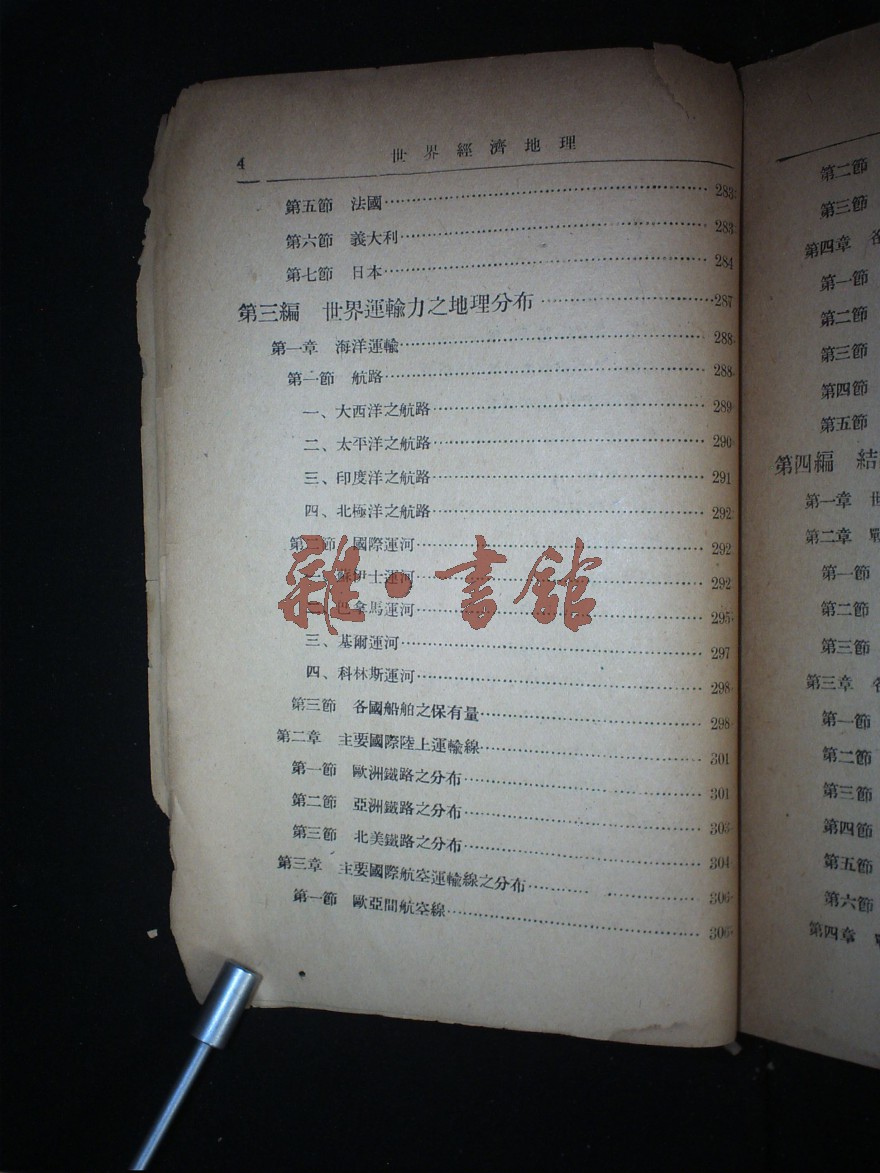 4 世界經濟地理
第五節 法國……283
第六節 義大利……283
第七節 日本……284
第三編 世界運輸力之地理分布……287
第一章 海洋運輸……288
第一節 航路……288
一、大西洋之航路……289
二、太平洋之航路……290
三、印度洋之航路……291
四、北極洋之航路……292
第二節 國際運河……292
一、蘇伊士運河……292
二、巴拿馬運河……295
三、基爾運河……297
四、科林斯運河……298
第三節 各國船舶之保有量……298
第二章 主要國際陸上運輸線……301
第一節 歐洲鐵路之分布……301
第二節 亞洲鐵路之分布……303
第三節 北美鐵路之分布……304
第三章 主要國際航空運輸線之分布……306
第一節 歐亞間航空線……306
雜·書館
第二節
第三節
第四章 各
第一節
第二節
第三節
第四節
第五節
第四編 結
第一章 世
第二章 戰
第一節
第二節
第三節
第三章 各
第一節
第二節
第三節
第四節
第五節
第六節
第四章